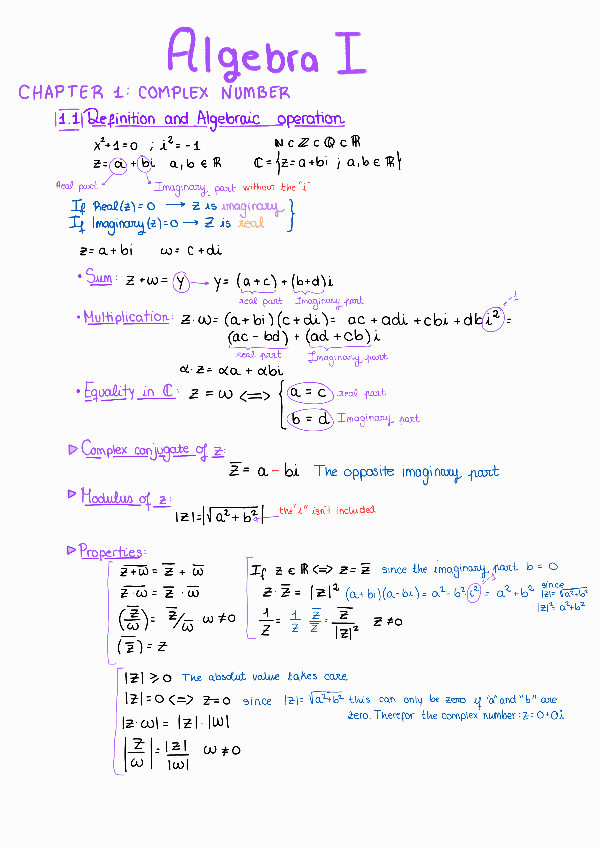 Algebra I
CHAPTER 1: COMPLEX NUMBER
1.1 Definition and Algebraic operation
x²+1=0 ; i²=-1 ℕ⊂ℤ⊂ℚ⊂ℝ
z=a+bi a,b∈ℝ ℂ={z=a+bi ; a,b∈ℝ}
Real part Imaginary part without the "i"
If Real(z)=0 → z is imaginary
If Imaginary(z)=0 → z is real
z=a+bi ω=c+di
• Sum: z+ω=y → y=(a+c)+(b+d)i
real part Imaginary part
-1
• Multiplication: z·ω=(a+bi)(c+di)= ac+adi+cbi+dbi²=
(ac-bd)+(ad+cb)i
real part Imaginary part
α·z=αa+αbi
• Equality in ℂ: z=ω <=> { a=c real part
b=d Imaginary part
▷ Complex conjugate of z:
z̅=a-bi The opposite imaginary part
▷ Modulus of z:
|z|=|√a²+b²| the "i" isn't included
▷ Properties:
z̅+̅ω̅ = z̅ + ω̅ If z∈ℝ <=> z=z̅ since the imaginary part b=0
z̅·̅ω̅ = z̅ · ω̅ z·z̅=|z|² (a+bi)(a-bi)=a²-b²i²=a²+b² since |z|=√a²+b²
-1
|z|²=a²+b²
(z/ω)̅ = z̅/ω̅ ω≠0 1/z = 1/z · z̅/z̅ = z̅/|z|² z≠0
(z̅)=z
|z|≥0 The absolut value takes care
|z|=0 <=> z=0 since |z|=√a²+b² this can only be zero if "a" and "b" are
zero. Therefor the complex number: z=0+0i
|z·ω|=|z|·|ω|
|z/ω|=|z|/|ω| ω≠0